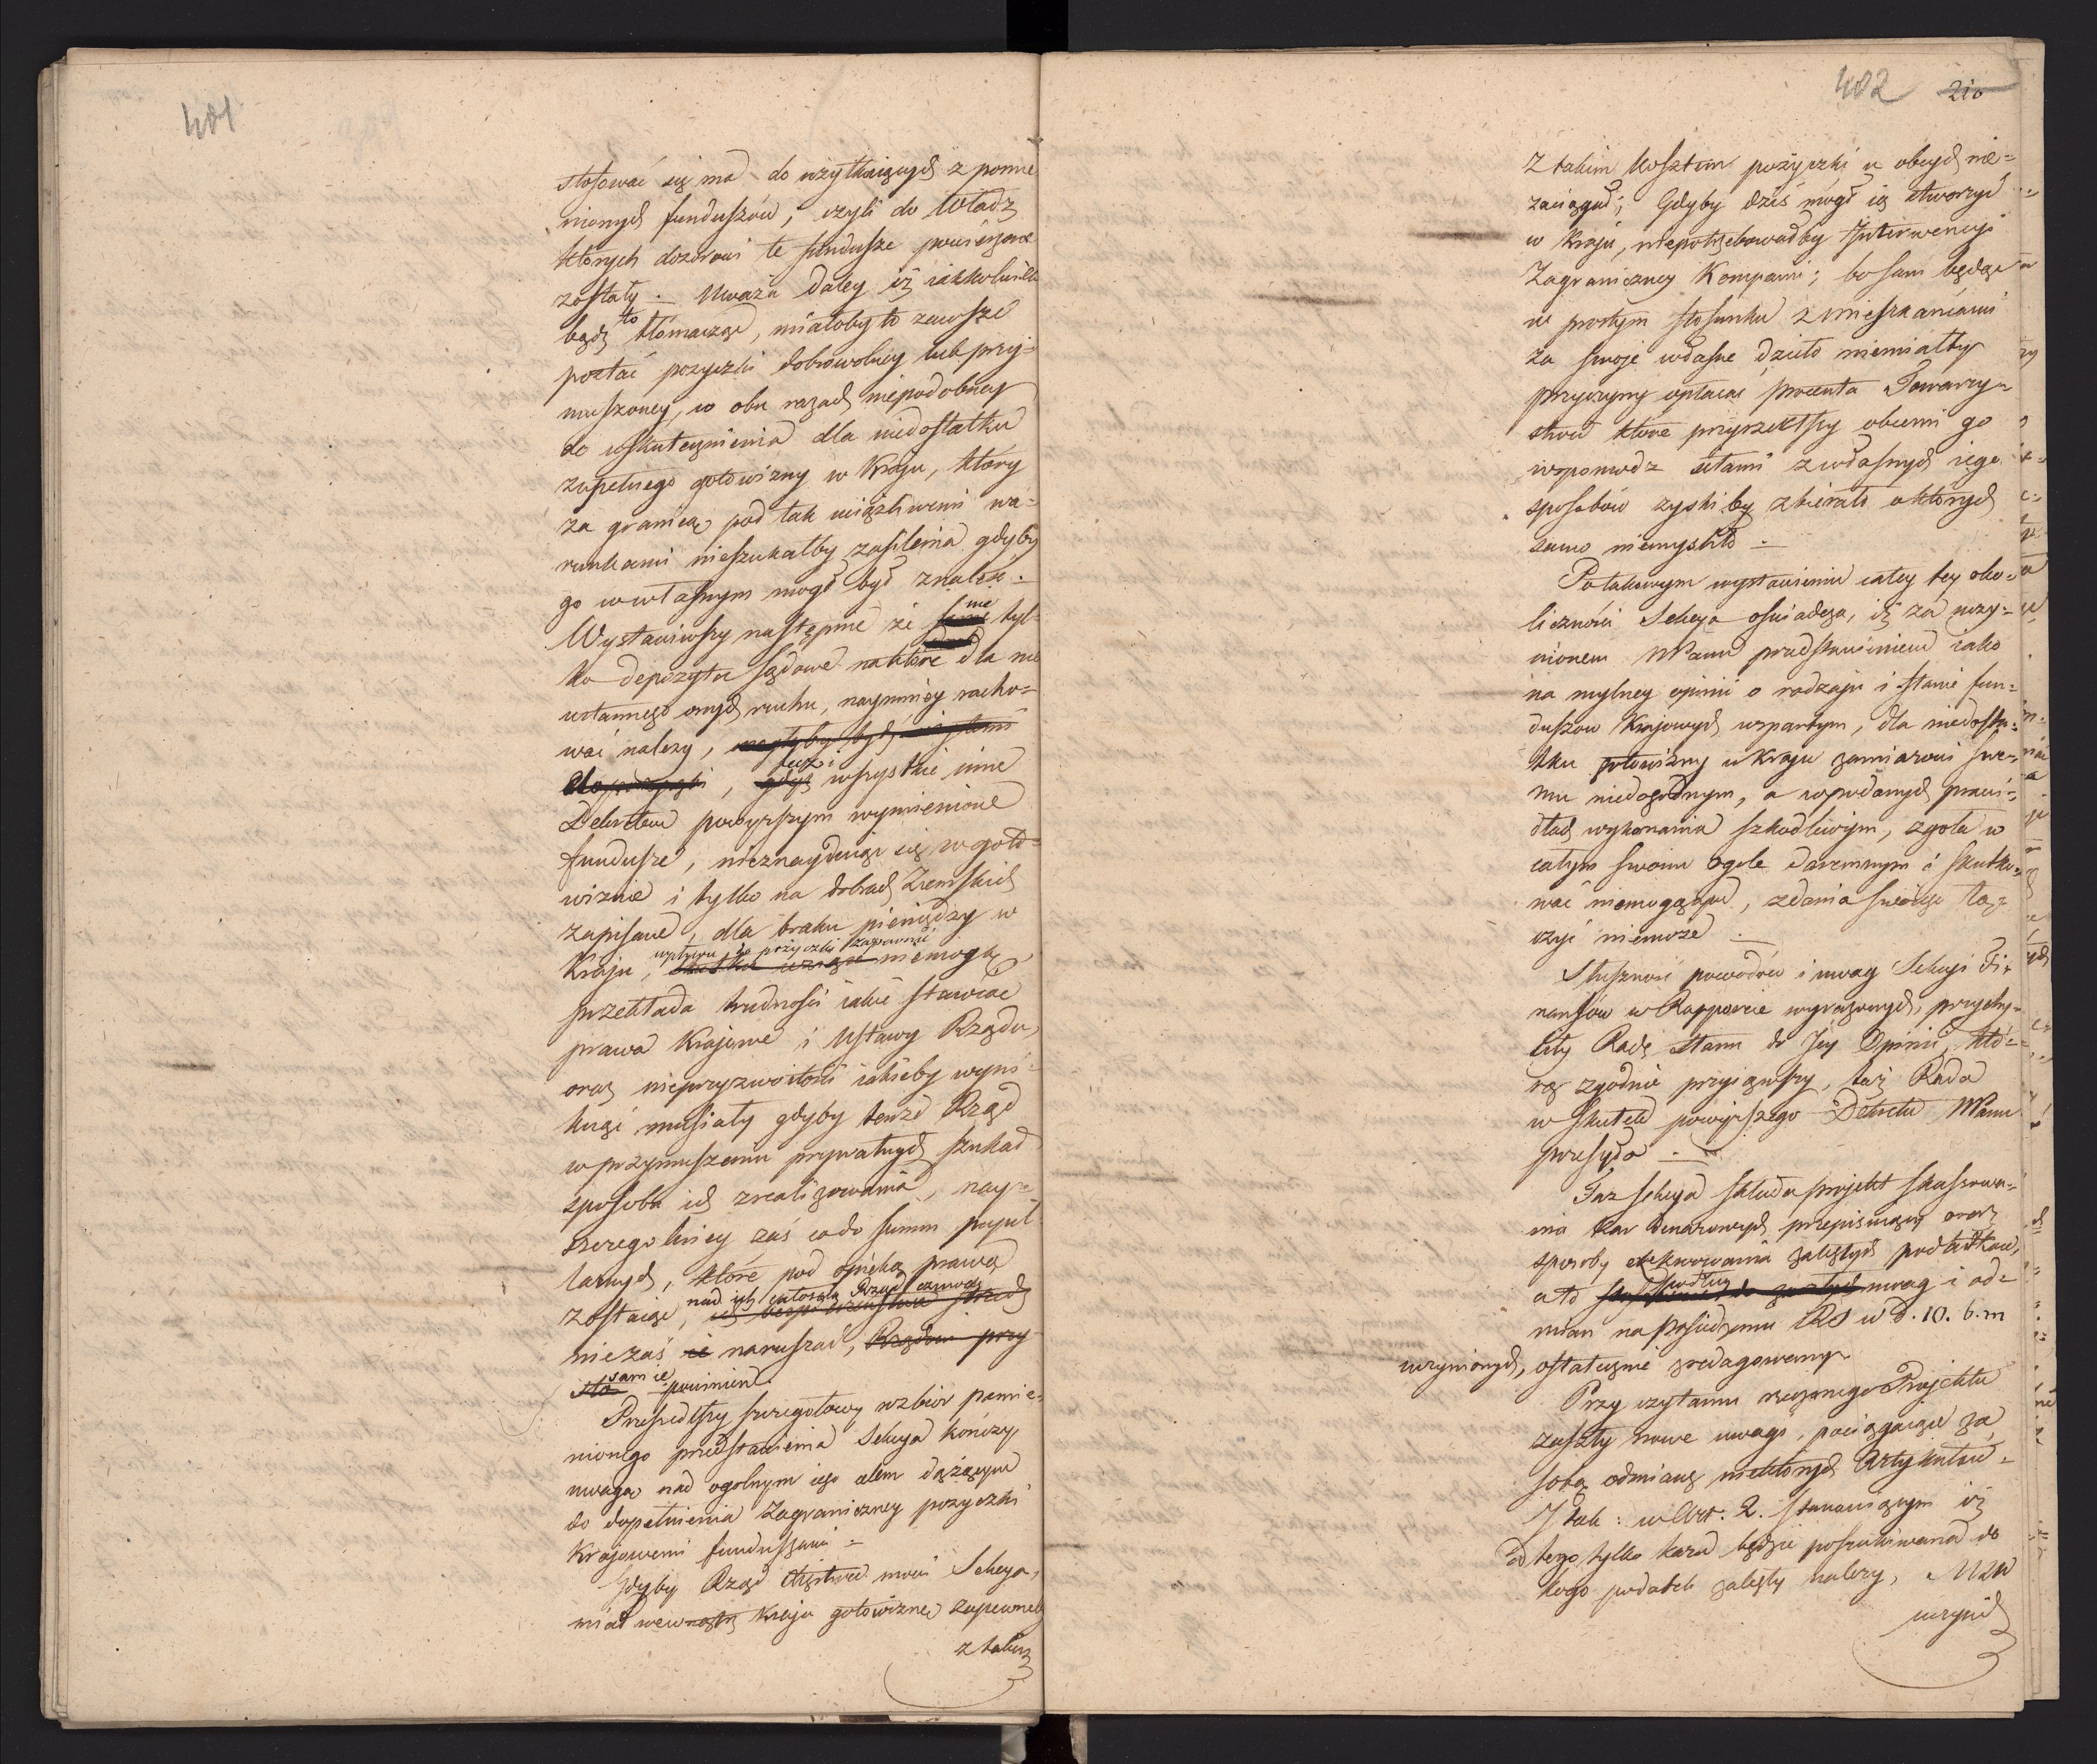 401
stosować się ma do użytkuiących z pomie
nionych funduszów, czyli do Władz
których dozorowi te fundusze powierzone
zostały. Uważa daley iż iakkolwiek
bądź to tłómacząc, miałoby to zawsze
postać pożyczki dobrowolney lub przy=
muszoney, w obu razach niepodobney
do uskutecznienia dla niedostatku
zupełnego gotowizny w Kraju, który
za granicą pod tak uciążliwemi wa=
runkami nieszukałby zasilenia gdyby
go w własnym mogł być znaleść.
Wystawiwszy następnie że nie tyl=
ko depozyta sądowe na które dla nie
ustannego onych ruchu, naymniey racho=
wać należy,
, lecz i wszystkie inne
Dekretem powyższym wymienione
fundusze, nieznayduiąc się w goto=
wiznie i tylko na dobrach Ziemskich
zapisane, dla braku pieniędzy w
Kraju, wpływu do pożyczki zapewnić niemogą,
przekłada trudności iakie stawiać
prawa Krajowe i Ustawy Rządu,
oraz nieprzyzwoitości iakieby wyni=
knąć musiały gdyby tenże Rząd
w przymuszeniu prywatnych szukał
sposobu ich zrealizowania, nay=
szczegolniey zaś co do summ pupil=
larnych, które pod opieką prawa
zostaiąc, nad ich całością Rząd czuwać
nie zaś ie naruszać, Rządom przy
sto sam ie powinien.
Przeszedłszy szczegołowy rozbiór pomie=
nionego przedstawienia Sekcya kończy,
uwagą nad ogolnym iego celem dążącym
do dopełnienia Zagraniczney pożyczki
Krajowemi funduszami =
Gdyby Rząd Xięstwa mówi Sekcya,
miał wewnątrz Kraju gotowiznę zapewne
z takim
402 210
Z takim kosztem pożyczki u obcych nie=
zaciągał; Gdyby dziś mógł ią stworzyć
w Kraju, niepotrzebowałby Interwencyi
Zagraniczney Kompanii; bo sam będąc
w prostym stosunku z mieszkańcami
za swoje własne dzieło niemiałby
przyczyny opłacać procenta Towarzy=
stwu które przyszedłszy obcemi go
wspomodz siłami z własnych iego
sposobów zyski by zbierało o których
samo niemyśliło =
Po takowym wystawieniu całey tey oko=
liczności Sekcya oświadcza, iż za uczy=
nionem WPanu przedstawieniem iako
na mylney opinii o rodzaju i stanie fun=
duszow Krajowych wspartym, dla niedosta=
tku gotowizny w Kraju zamiarowi swe=
mu niedogodnym, a w podanych prawi=
dłach wykonania szkodliwym, zgoła w
całym swoim ogole daremnym i skutko=
wać niemogącym, zdania swoiego łą=
czyć niemoże.
Słuszność powodów i uwag Sekcyi Fi=
nansów w Rapporcie wyrażonych, przychy=
liły Radę Stanu do Jéy Opinii, któ=
rą zgodnie przyiąwszy, taż Rada
w skutek powyższego Dekretu WPanu
przesyła.
Taz Sekcya składa projekt skassowa=
nia kar denarowych przepisuiący oraz
sposoby exekwowania zaległych podatków,
a to podług uwag i od=
mian na posiedzeniu RS w d. 10. b.m
uczynionych, ostatecznie zredagowany.
Przy czytaniu rzeczonego Projektu
zaszły nowe uwagi, pociągaiące za
sobą odmianę niektórych Artykułów =
I tak: w Art. 2. stanowiącym iż
od tego tylko kara będzie poszukiwana do
kogo podatek zaległy należy,
uczynił